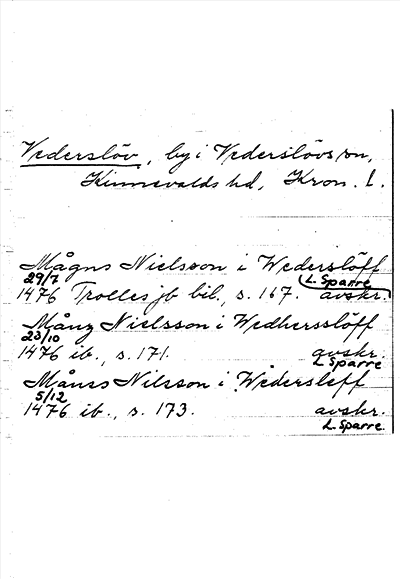 Vederslöv, by i Vederslövs sn,
Kinnevalds hd, Kron. l.
Mågns Nielsson i Wederslöff
29/7 L. Sparre
1476 Trolles jb bil., s. 167. avskr.
Månz Nielsson i Wedhersslöff
23/10
1476 ib., s. 171. avskr.
L Sparre
Månss Nilsson i Wedersleff
5/12
1476 ib., s. 173. avskr.
L. Sparre.